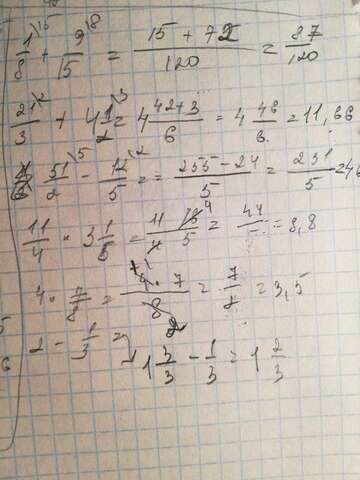 1/8 \15 + 9/15 \8 = (15 + 72)/120 = 87/120
21/3 \2 + 4 1/2 \3 = 4 (42+3)/6 = 4 46/6 = 11,66
51/2 \5 - 12/5 \2 = = (255 - 24)/5 = 231/5 = 46
11/4 · 3 1/5 = = 44/ = 8,8
4 · 7/8 = (4 · 7)/8 = 7/2 = 3,5
2 - 1/3 = 1 3/3 - 1/3 = 1 2/3